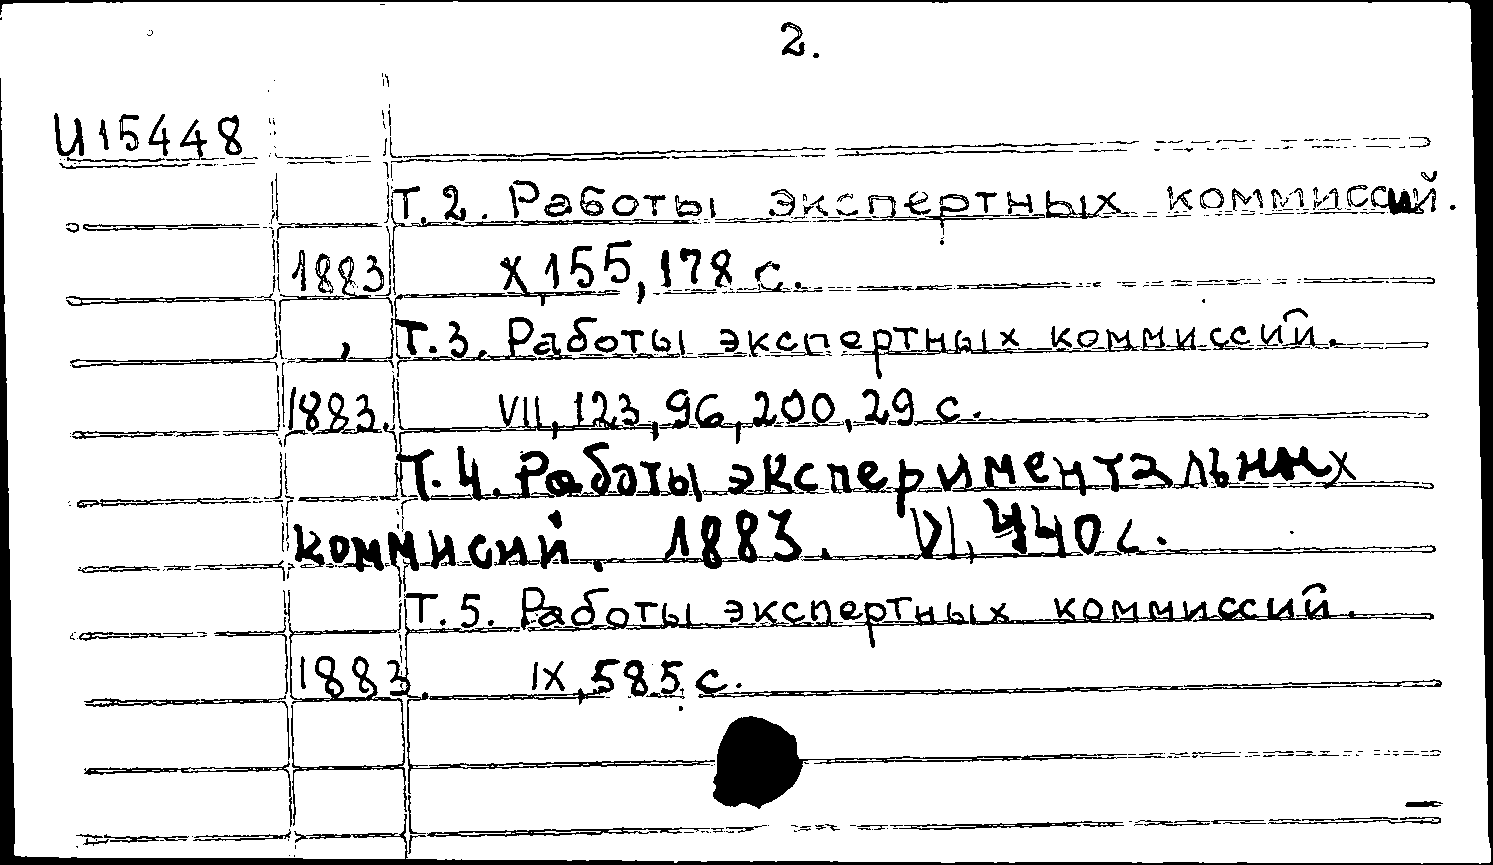 2.
И15448
Т.2. Работы экспертных коммиссий.
1883 X, 155, 178 с.
Т.3. Работы экспертных коммиссий.
1883. VII, 123, 96, 200, 29 с.
Т.4. Работы экспериментальных
коммисий. 1883. VI, 440 с.
Т.5. Работы экспертных коммиссий.
1883. IX, 585 с.